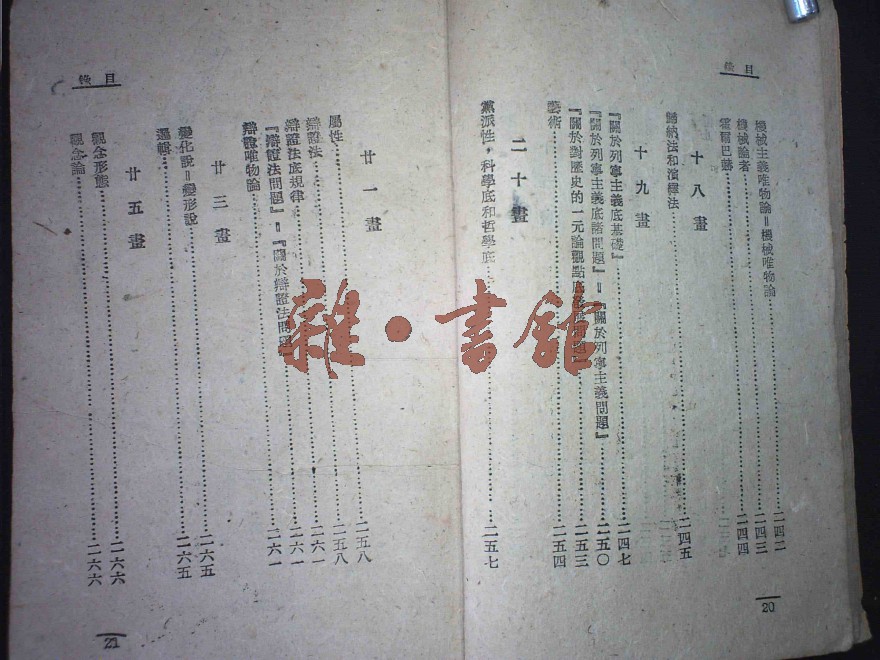 目錄
機械主義唯物論＝機械唯物論……二四二
機械論者……二四三
霍爾巴赫……二四四
十八畫
歸納法和演繹法……二四五
十九畫
『關於列寧主義底基礎』……二四七
『關於列寧主義底諸問題』＝『關於列寧主義問題』……二五〇
『關於對歷史的一元論觀點底發展問題』……二五三
藝術……二五四
二十畫
黨派性，科學底和哲學底……二五七
20
目錄
廿一畫
屬性……二五八
辯證法……二五八
辯證法底規律……二六一
『辯證法問題』＝『關於辯證法問題』……二六一
辯證唯物論……二六一
廿三畫
變化說＝變形說……二六五
邏輯……二六五
廿五畫
觀念形態……二六六
觀念論……二六六
21
雜·書館